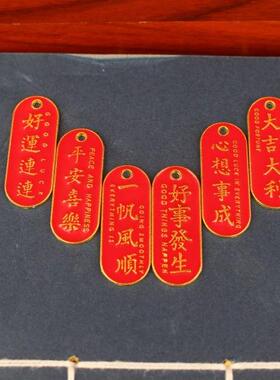 好運連連
GOOD LUCK
平安喜樂
PEACE AND HAPPINESS
一帆風順
GOING SMOOTHLY
EVERYTHING IS
好事發生
GOOD THINGS HAPPEN
心想事成
GOOD LUCK IN EVERYTHING
大吉大利
GOOD FORTUNE